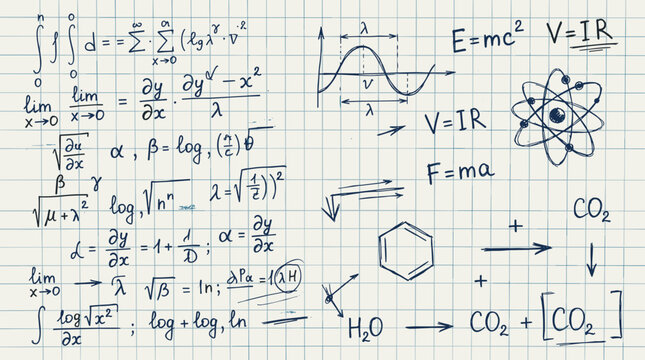 ∫ₒⁿ ∫ ∫₀⁰ d = = ∑^∞ · ∑_{x→0}^{n} (log λ^γ · v^{·2}
lim_{x→0} lim_{x→0} = ∂y/∂x · ∂y − x²/λ
√∂u/∂x α , β = log,
β γ
√μ + λ² log, √nⁿ λ = √
∂y/∂x = 1 + 1/D ; α = ∂y/∂x
lim_{x→0} → λ √β = ln; = 1 λH
∫ log √x² / ∂x ; log + log, ln
λ
v
λ
E=mc² V=IR
V=IR
F=ma
+ CO₂
+
H₂O → CO₂ + [CO₂]